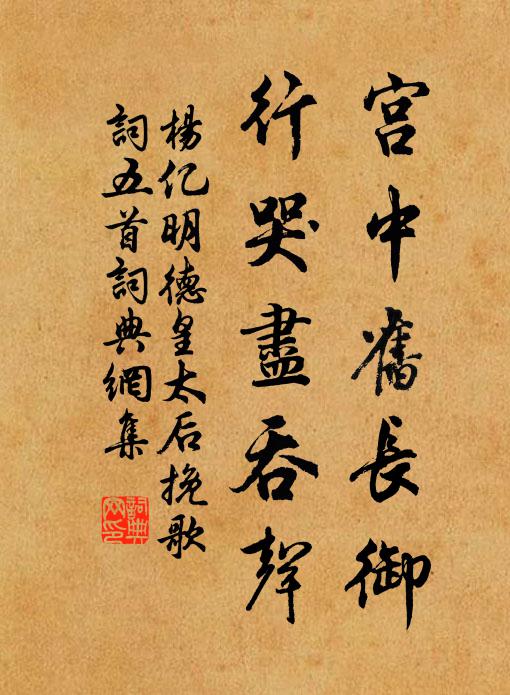 宫中舊長御
行哭盡吞聲
楊亿明德皇太后挽歌
詞五首詞典網集
詞典网印